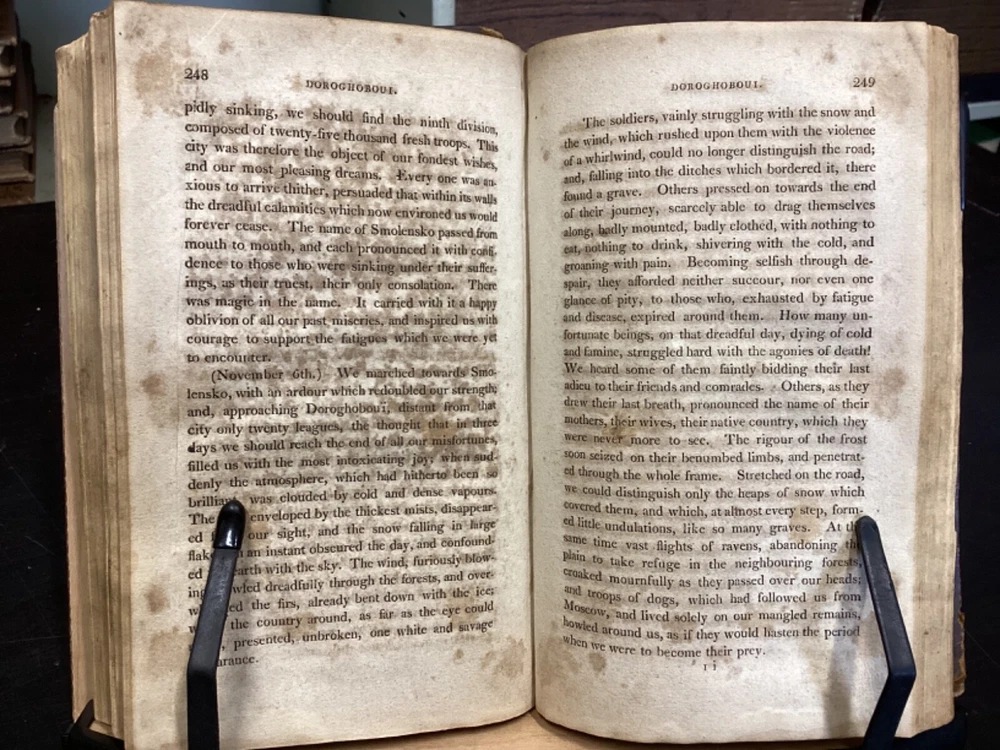 248
DOROGHOBOUI.
pidly sinking, we should find the ninth division,
composed of twenty-five thousand fresh troops. This
city was therefore the object of our fondest wishes,
and our most pleasing dreams. Every one was an-
xious to arrive thither, persuaded that within its walls
the dreadful calamities which now environed us would
forever cease. The name of Smolensko passed from
mouth to mouth, and each pronounced it with confi-
dence to those who were sinking under their suffer-
ings, as their truest, their only consolation. There
was magic in the name. It carried with it a happy
oblivion of all our past miseries, and inspired us with
courage to support the fatigues which we were yet
to encounter.
(November 6th.) We marched towards Smo-
lensko, with an ardour which redoubled our strength;
and, approaching Doroghoboui, distant from that
city only twenty leagues, the thought that in three
days we should reach the end of all our misfortunes,
filled us with the most intoxicating joy; when sud-
denly the atmosphere, which had hitherto been so
brilliant was clouded by cold and dense vapours.
The enveloped by the thickest mists, disappear-
ed our sight, and the snow falling in large
flake an instant obscured the day, and confound-
ed earth with the sky. The wind, furiously blow-
ing wled dreadfully through the forests, and over-
w ed the firs, already bent down with the ice;
w the country around, as far as the eye could
, presented, unbroken, one white and savage
arance.
249
DOROGHOBOUI.
The soldiers, vainly struggling with the snow and
the wind, which rushed upon them with the violence
of a whirlwind, could no longer distinguish the road;
and, falling into the ditches which bordered it, there
found a grave. Others pressed on towards the end
of their journey, scarcely able to drag themselves
along, badly mounted, badly clothed, with nothing to
eat, nothing to drink, shivering with the cold, and
groaning with pain. Becoming selfish through de-
spair, they afforded neither succour, nor even one
glance of pity, to those who, exhausted by fatigue
and disease, expired around them. How many un-
fortunate beings, on that dreadful day, dying of cold
and famine, struggled hard with the agonies of death!
We heard some of them faintly bidding their last
adieu to their friends and comrades. Others, as they
drew their last breath, pronounced the name of their
mothers, their wives, their native country, which they
were never more to see. The rigour of the frost
soon seized on their benumbed limbs, and penetrat-
ed through the whole frame. Stretched on the road,
we could distinguish only the heaps of snow which
covered them, and which, at almost every step, form-
ed little undulations, like so many graves. At th
same time vast flights of ravens, abandoning the
plain to take refuge in the neighbouring forests,
croaked mournfully as they passed over our heads;
and troops of dogs, which had followed us from
Moscow, and lived solely on our mangled remains,
howled around us, as if they would hasten the period
when we were to become their prey.
I i